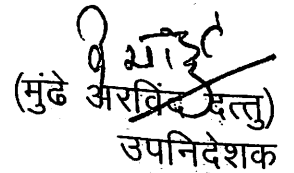 (मुंढे अरविंद दत्तु)
उपनिदेशक